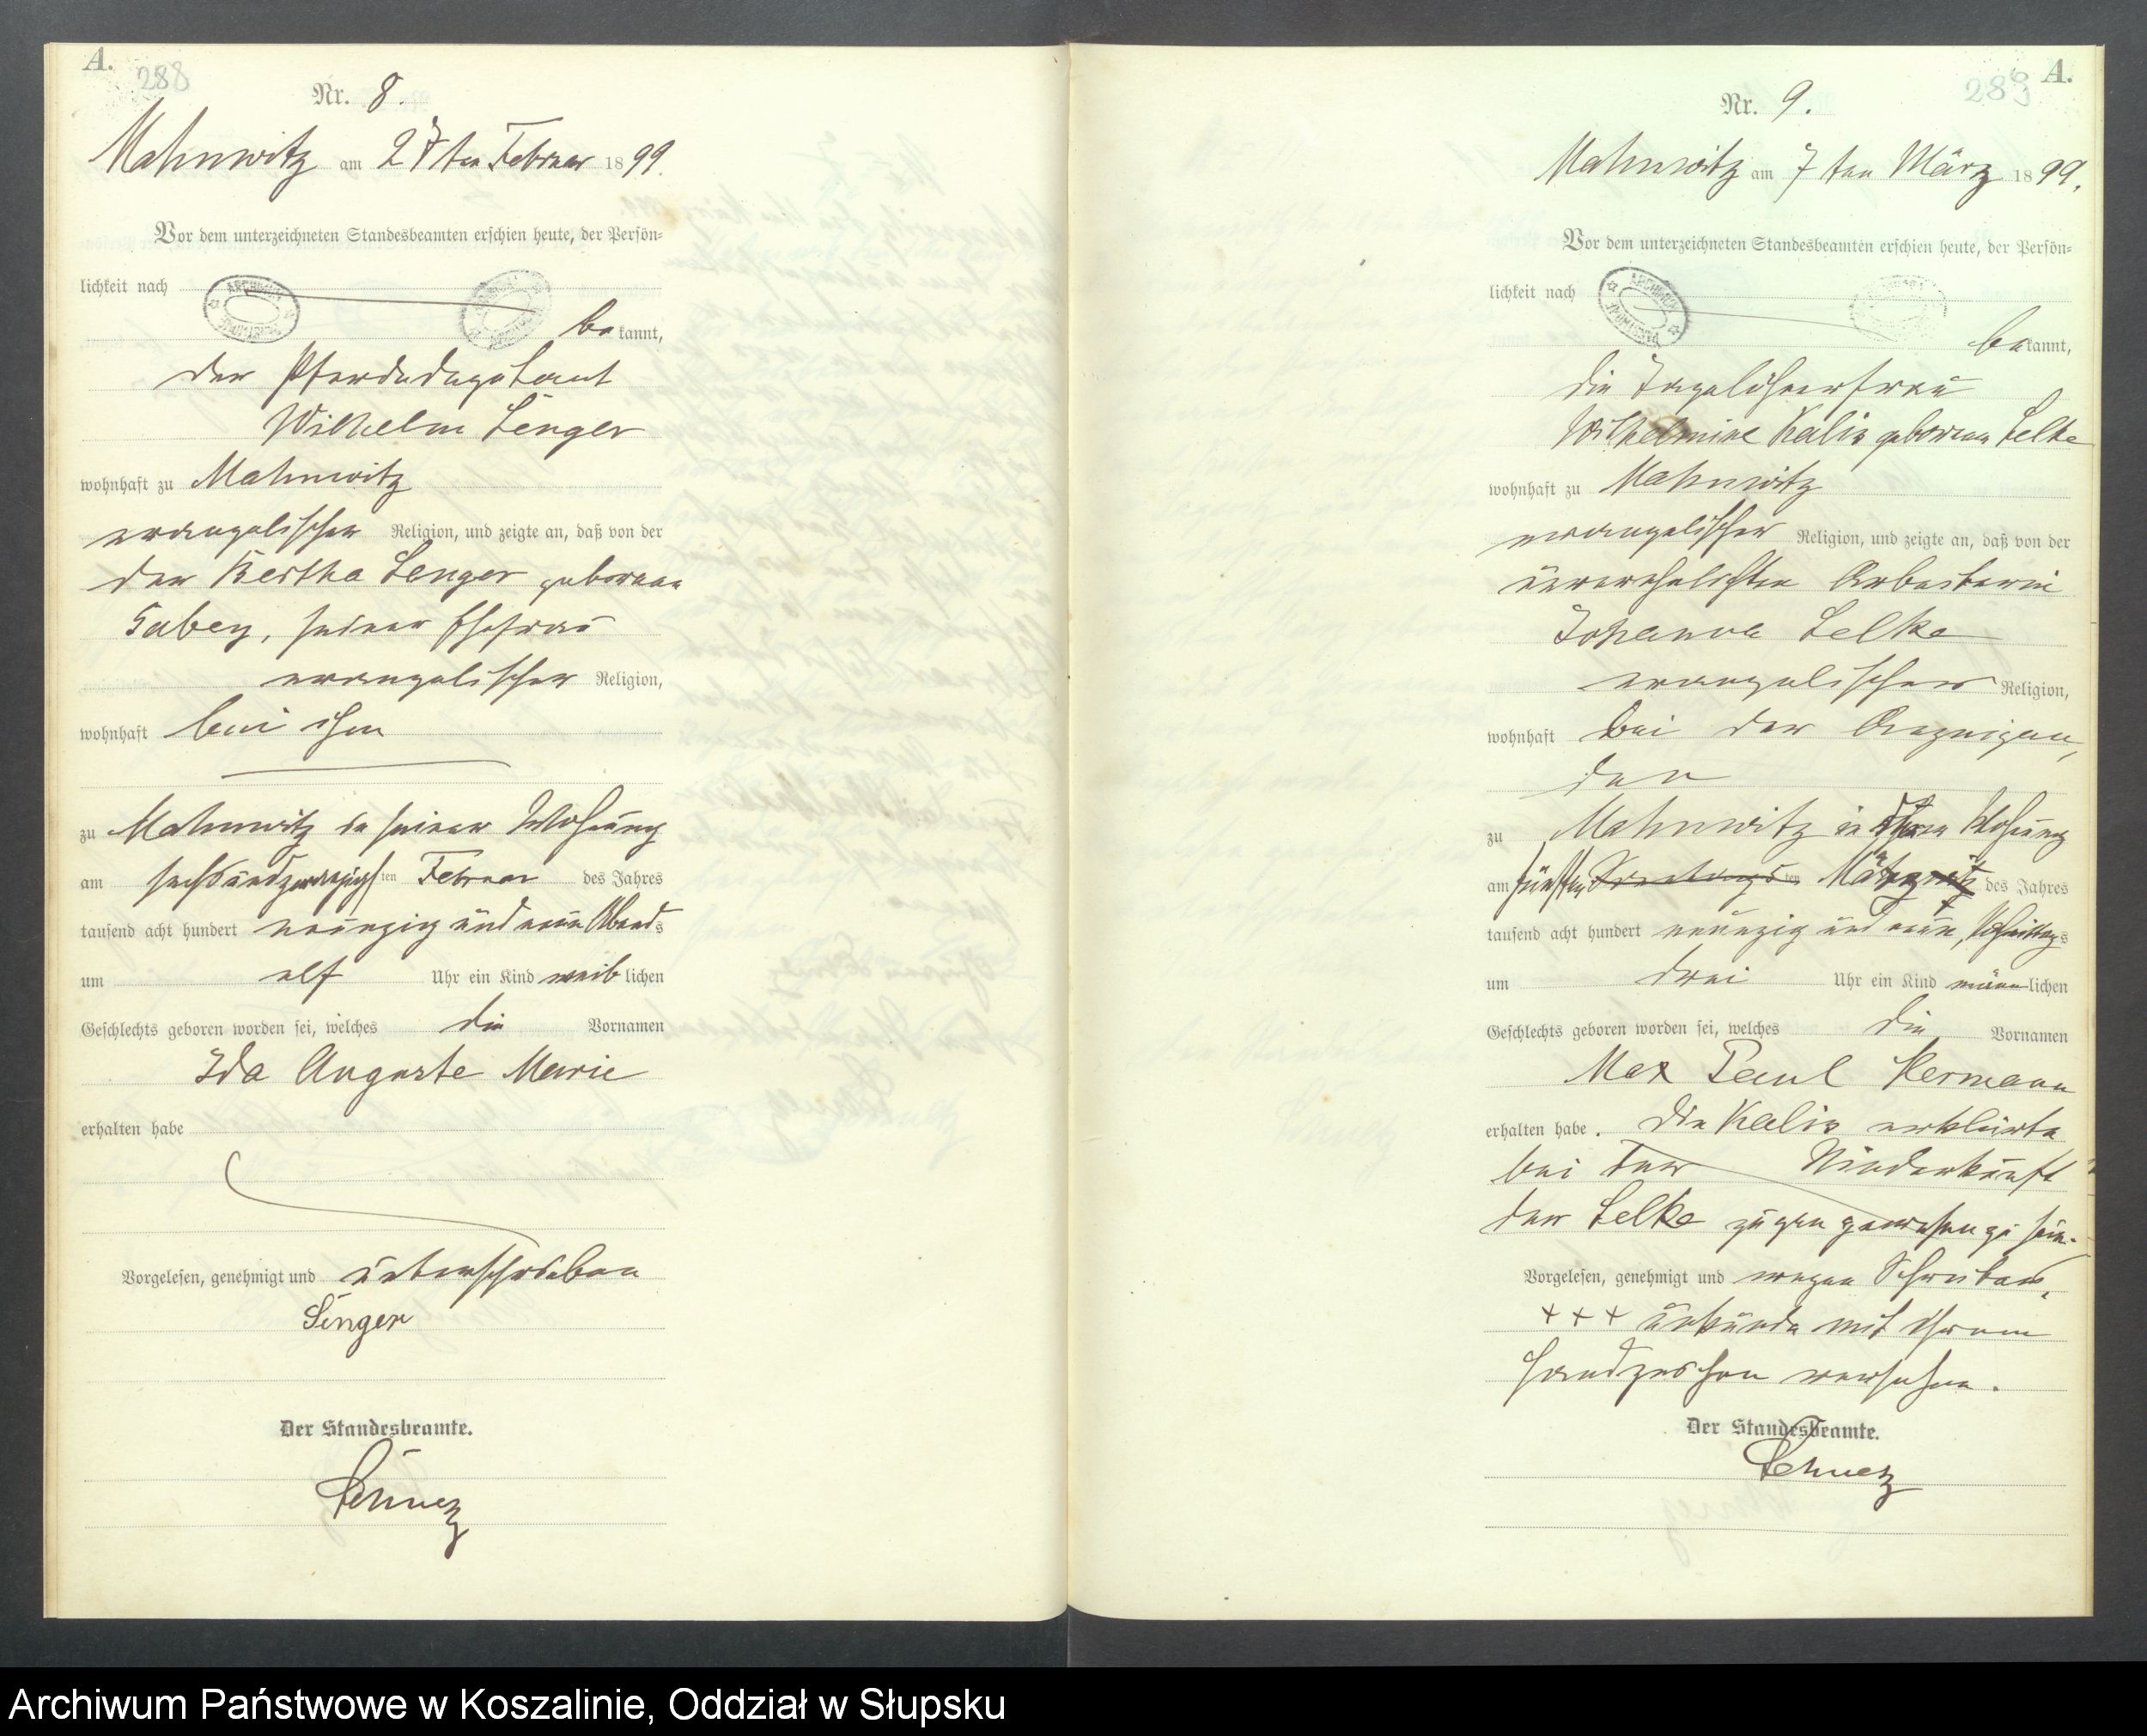 A.
288
Nr. 8.
Mahnwitz am 27ten Februar 1899.
Vor dem unterzeichneten Standesbeamten erschien heute, der Persön-
lichkeit nach
bekannt,
der
Wilhelm Senger
wohnhaft zu Mahnwitz
evangelischer Religion, und zeigte an, daß von der
der Bertha Senger geborene
seiner Ehefrau
evangelischer Religion,
wohnhaft bei ihm
zu Mahnwitz in seiner Wohnung
am sechsundzwanzigsten Februar des Jahres
tausend acht hundert neunzig und neun Abends
um elf Uhr ein Kind weiblichen
Geschlechts geboren worden sei, welches die Vornamen
Ida Auguste Marie
erhalten habe
Vorgelesen, genehmigt und unterschrieben
Senger
Der Standesbeamte.
A.
289
Nr. 9.
Mahnwitz am 7ten März 1899.
Vor dem unterzeichneten Standesbeamten erschien heute, der Persön-
lichkeit nach
bekannt,
die Tagelöhnerfrau
Wilhelmine Kalis geborene Selke
wohnhaft zu Mahnwitz
evangelischer Religion, und zeigte an, daß von der
unverehelichten Arbeiterin
Johanna Selke
evangelischer Religion,
wohnhaft bei der Anzeigen-
den
zu Mahnwitz in Wohnung
am fünften ten März des Jahres
tausend acht hundert neunzig und neun,
um drei Uhr ein Kind männlichen
Geschlechts geboren worden sei, welches die Vornamen
Max Paul Hermann
erhalten habe. Die Kalis erklärte
bei der Niederkunft
der Selke zugen gewesen zu sein.
Vorgelesen, genehmigt und wegen Schreibens-
+++ unkunde mit ihrem
Handzeichen versehen.
Der Standesbeamte.
Archiwum Państwowe w Koszalinie, Oddział w Słupsku